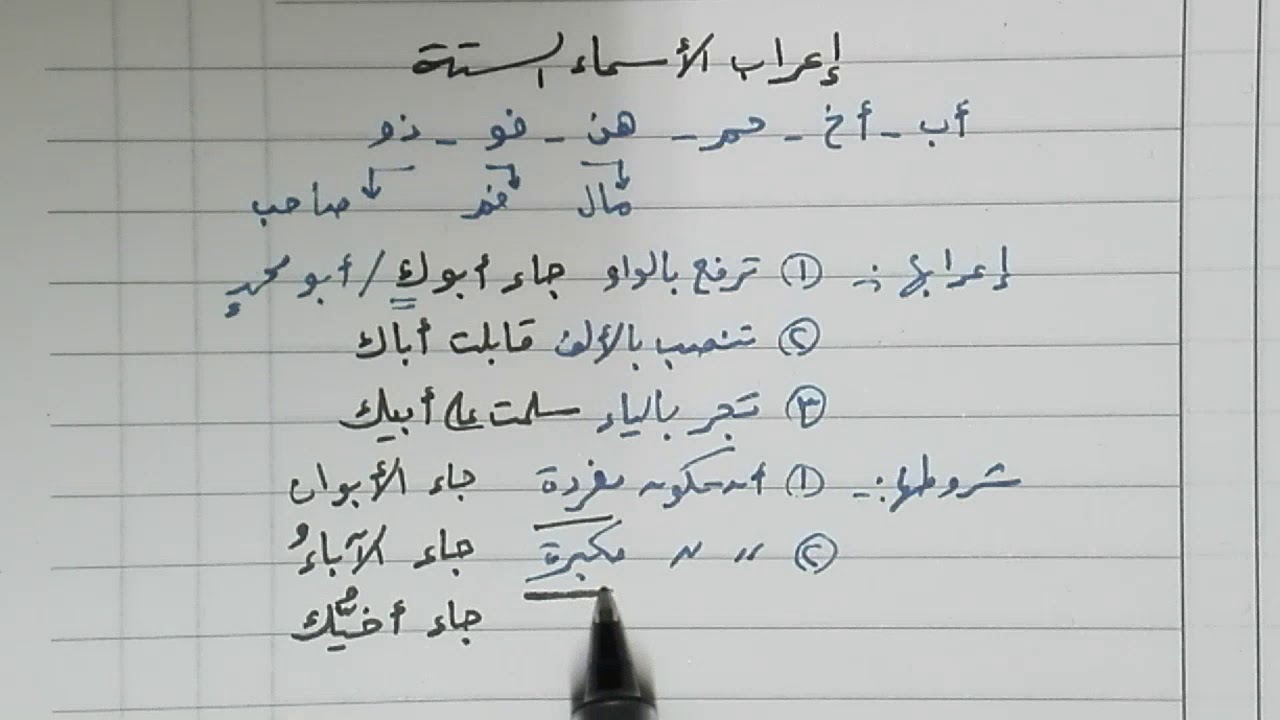 إعراب الأسماء الستة
أب - أخ - حم - هن - فو - ذو
مال فم صاحب
إعرابها :- ① ترفع بالواو جاء أبوك / أبو محمدٍ
② تنصب بالألف قابلت أباك
③ تجر بالياء سلمت على أبيك
شروطها :- ① أن تكون مفردة جاء الأبوان
② " " مكبرة جاء الآباءُ
جاء أُخَيُّك